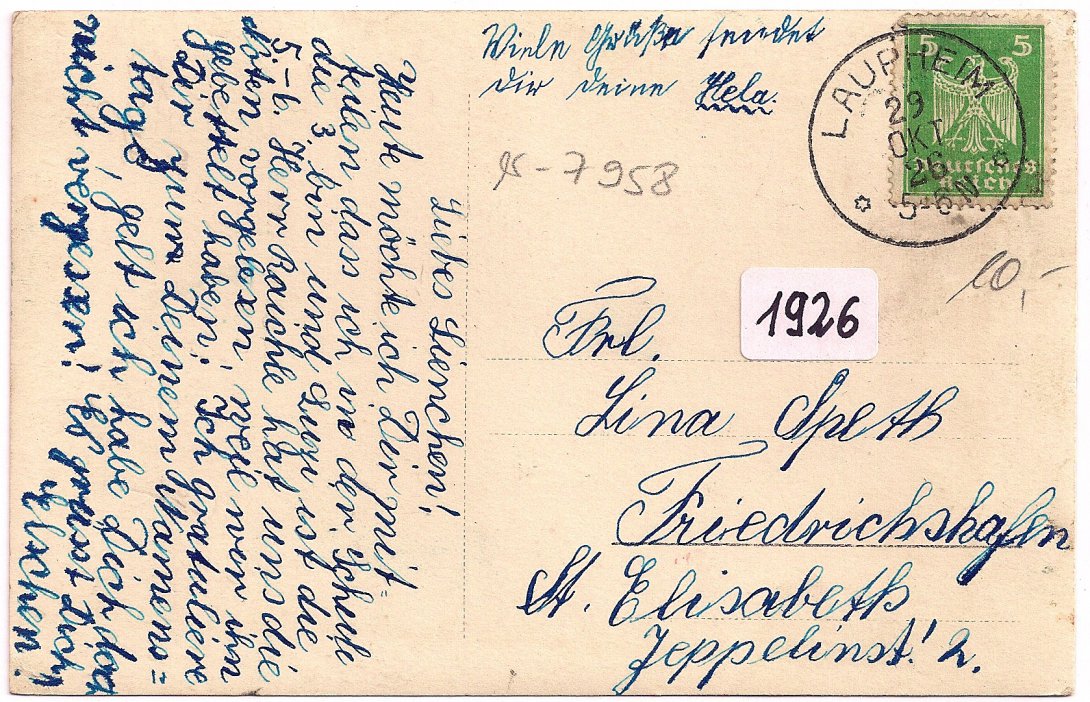 Viele Grüße sendet
dir deine Hela.
LAUPHEIM
29
OKT
26
5-6 N
5 5
Deutsches
Reich
7958
10,-
1926
Frl.
Lina Speth
Friedrichshafen
St. Elisabeth
Zeppelinst. 2.
Liebes Lienchen!
Heute möchte ich Dir mit=
teilen dass ich in der Schule
die 3. bin und Luzi ist die
5-6. Herr Raichle hat uns die
Noten vorgelesen, weil wir ihn
gebettelt haben. Ich gratuliere
Dir zum Deinem Namens=
tage, gelt ich habe Dich doch
nicht vergessen! Es grüsst Dich
Elschen!